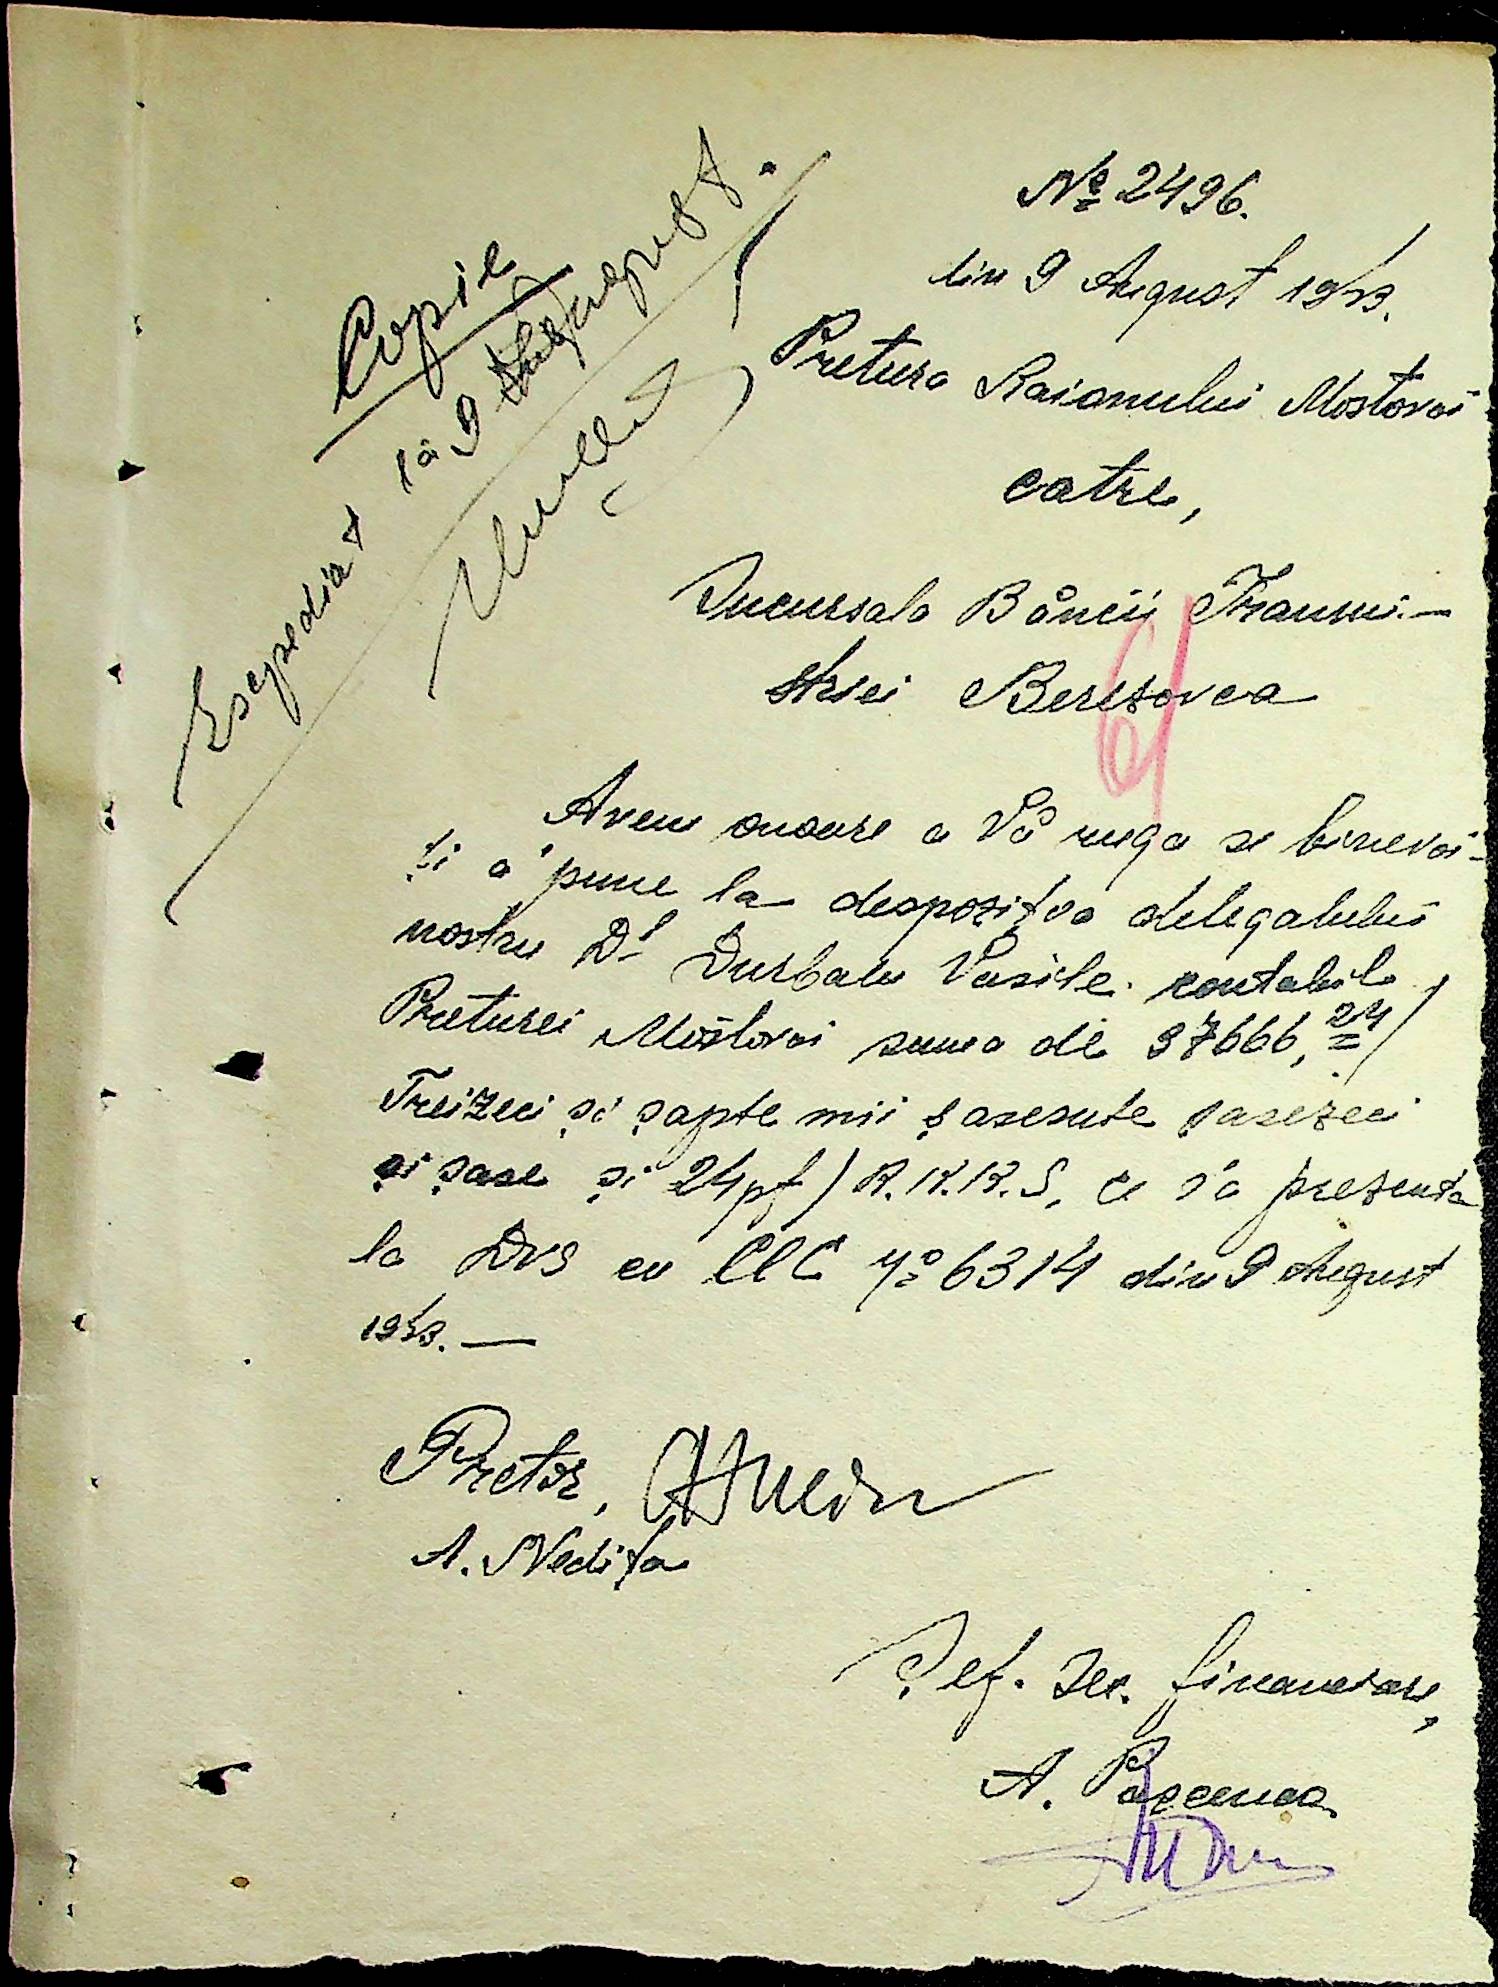 Copie
Escpediat la 9 August
№ 2496.
din 9 August 1943.
Pretura Raionului Mostovoi
catre,
Sucursala Băncii Transni-
striei Beresovca
61
Avem onoare a Vă ruga se binevoi-
ți a pune la despozitva delegatului
nostru Dl Durbalu Vasile contabil
Preturei Mostovoi suma de 37666,24/
Treizeci și șapte mii șasesute șasezeci
și șase și 24pf) R.K.K.S, ce s'a prezenta
la DVS cu CEC № 6314 din 9 August
1943. —
Pretor,
A. Nedița
Șef. Sec. financiare,
A.